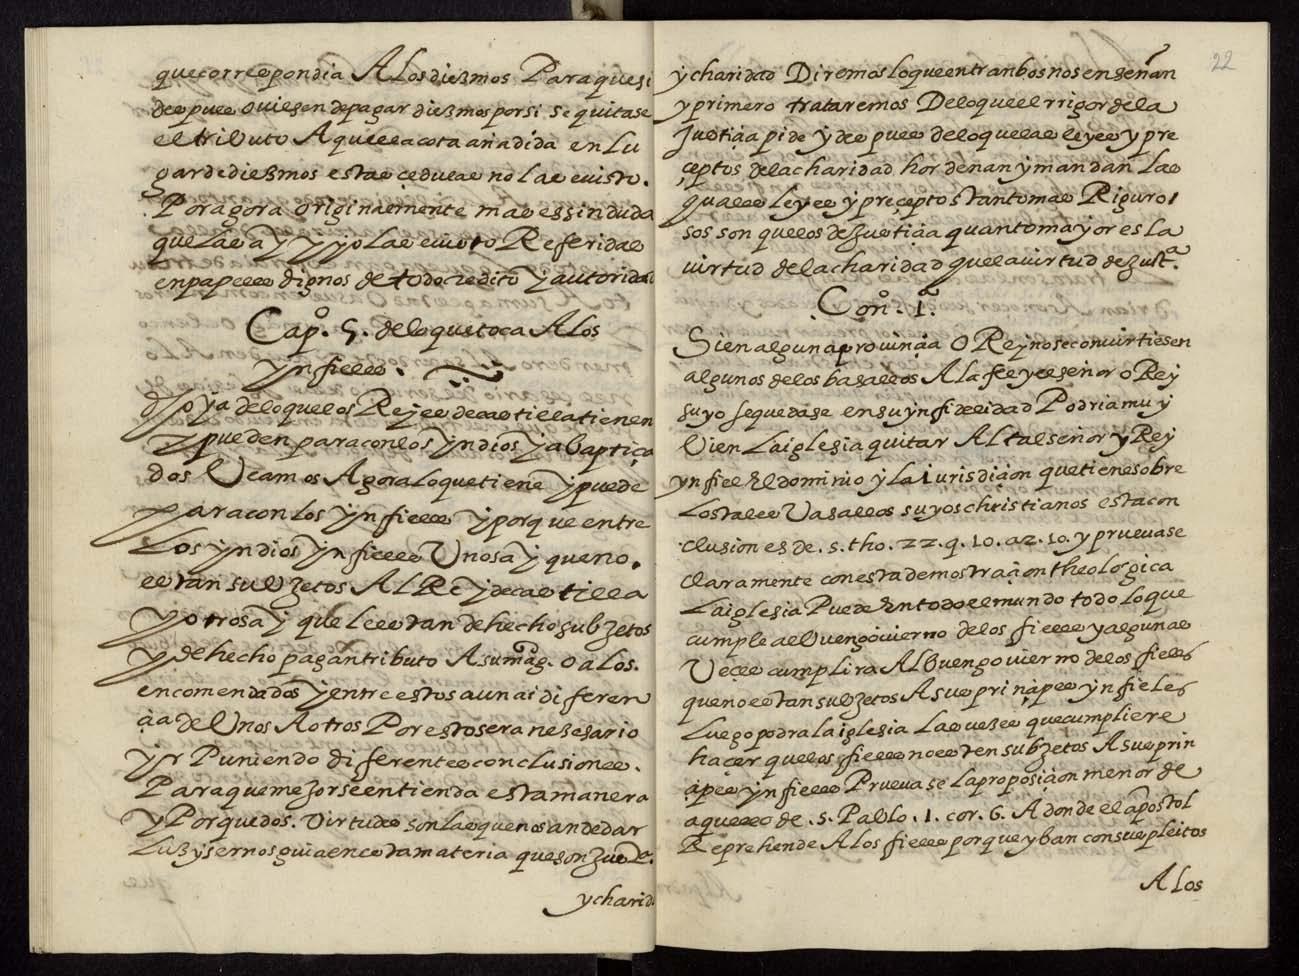 que correspondia A Los diezmos Para que si
despues oviesen de pagar diezmos por si se quitase
el tributo A quella cota añadida en Lu
gar de diezmos estas çedulas no las e visto.
Por agora originalmente mas es sin duda
que las ay y yo las e visto Referidas
en papeles dignos de todo credito y autoridad
Capº. 5. de lo que toca A los
ynfieles.
Dho ya de lo que los Reyes de castilla tienen
y pueden para con los yndios ya baptiça
dos Veamos Agora lo que tiene y puede
para con los ynfieles y porque entre
Los yndios ynfieles Unos ay que no
estan subzetos Al Rey de castilla
y otros ay que le estan de hecho subzetos
y de hecho pagan tributo A su mag. o a los
encomendados y entre estos aun ai diferen
çia de Unos A otros Por esto sera nezesario
yr Puniendo diferentes conclusiones.
Para que mejor se entienda esta manera
y Porque dos. Virtudes son las que nos an de dar
Luz y sernos guia en esta materia que son Justª.
y charid.
22
y charidad Diremos lo que entranbos nos enseñan
y primero trataremos De lo que el rrigor de la
Justiçia pide y despues de lo que las leyes y pre
çeptos de la charidad hordenan y mandan Las
quales leyes y preçeptos tanto mas Riguro
sos son que los de Justiçia quanto mayor es la
virtud de la charidad que la virtud de Justª.
Conº. 1ª.
Si en alguna provinçia O Reyno se convirtiesen
algunos de los basallos A la fee y el señor o Rey
suyo se quedase en su ynfidelidad Podria muy
Vien La iglesia quitar Al tal señor y Rey
ynfiel El dominio y la iurisdiçion que tiene sobre
Los tales Vasallos suyos christianos esta con
clusion es de .s. tho. 22. q. 10. a2. 10. y pruevase
claramente con esta demostraçion theologica
La iglesia Puede En todo el mundo todo lo que
cumple al Buen govierno de los fieles y algunas
Veçes cumplira Al Buen govierno de los fieles
que no estan subzetos A sus prinçipes ynfieles
Luego podra la iglesia Las vezes que cumpliere
haçer que los fieles no esten subzetos A sus prin
çipes ynfieles Pruevase la proposiçion menor de
aquello de .s. Pablo .1. cor. 6. A donde el apostol
Reprehende A los fieles porque yban con sus pleitos
A los